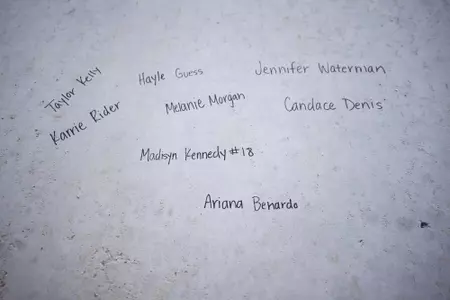 Taylor Kelly
Karrie Rider
Hayle Guess
Melanie Morgan
Jennifer Waterman
Candace Denis
Madisyn Kennedy #18
Ariana Benardo